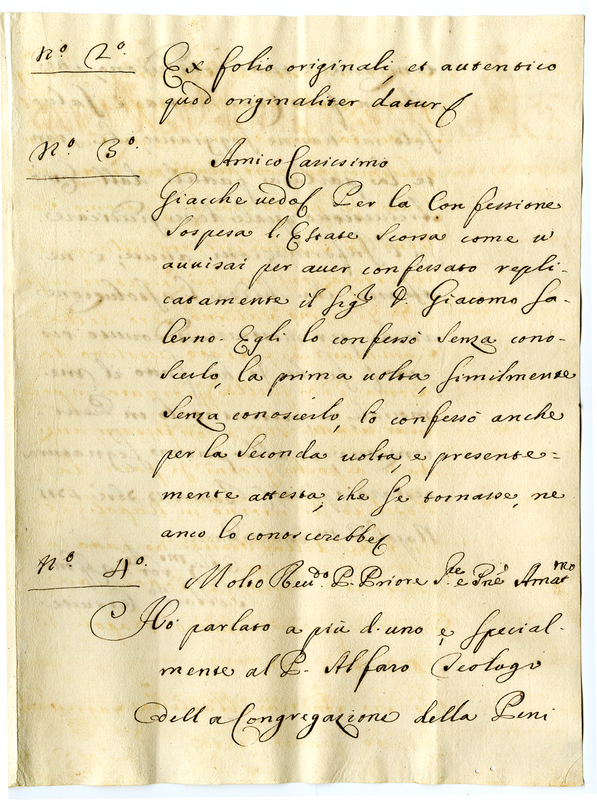 N.º 2º. Ex folio originali et autentico
quod originaliter datur
N.º 3º. Amico Carissimo
Giacche Per la Confessione
sospesa l'Estate scorsa come v'
avvisai per aver confessato repli-
catamente il Sigr D. Giacomo Sa-
lerno. Egli lo confessò senza cono-
scerlo, la prima volta, similmente
senza conoscerlo, lo confessò anche
per la seconda volta, e presente=
mente attesta, che se tornasse, ne
anco lo conoscerebbe
N.º 4º. Molto Reudo. P. Priore Sre e Pne Amatmo
Hò parlato a più d'uno e special-
mente al P. Alfaro Teologo
della Congregazione della Peni